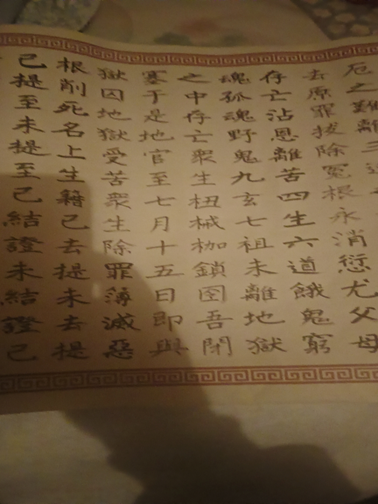 厄之難離三
去原罪拔除冤根永消愆尤父母
存亡沾恩離苦四生六道餓鬼窮
魂孤魂野鬼九玄七祖未離地獄
之中存亡眾生杻械枷鎖囹吾閉
塞于是地官至七月十五日即與
獄囚地獄受苦眾生除罪薄滅惡
根削死名上生籍已去提未去提
已提至未提至已結證未結證已